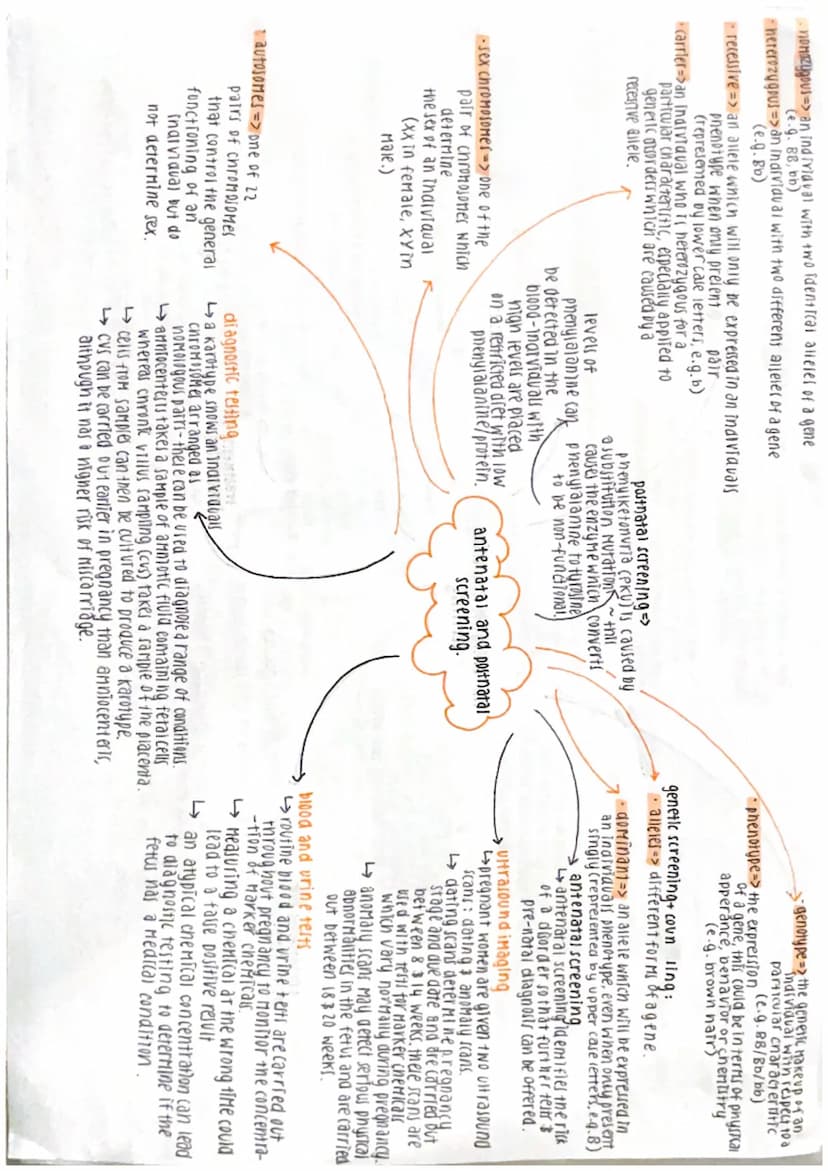 antenatal and postnatal
screening.
· homozygous => an individual with two identical alleles of a gene
(e.g. BB, bb)
· heterozygous => an individual with two different alleles of a gene
(e.g. Bb)
· recessive => an allele which will only be expressed in an individuals
phenotype when only present pair
(represented by lower case letters, e.g. b)
· carrier => an individual who is heterozygous for a
particular characteristic, especially applied to
genetic disorders which are caused by a
recessive allele.
· sex chromosomes => one of the
pair of chromosomes which
determine
the sex of an individual
(XX in female, XY in
male.)
· autosomes => one of 22
pairs of chromosomes
that control the general
functioning of an
individual but do
not determine sex.
postnatal screening =>
phenylketonuria (PKU) is caused by
a substitution mutation ~ this
causes the enzyme which converts
phenylalanine to tyrosine
to be non-functional
levels of
phenylalanine can
be detected in the
blood-individuals with
high levels are placed
on a restricted diet with low
phenylalanine/protein.
diagnostic testing
↳ a karotype shows an individuals
chromosomes arranged as
homologous pairs - these can be used to diagnose a range of conditions.
↳ amniocentesis takes a sample of amniotic fluid containing fetal cells
whereas chronic villus sampling (cvs) takes a sample of the placenta.
↳ cells from samples can then be cultured to produce a karotype.
↳ cvs can be carried out earlier in pregnancy than amniocentesis,
although it has a higher risk of miscarridge.
· genotype => the genetic makeup of an
individual with respect to a
particular characteristic
(e.g. BB/Bb/bb)
· phenotype => the expression
of a gene, this could be in terms of physical
apperance, behavior or chemistry
(e.g. brown hair)
genetic screening + coun ling:
· alleles => different form of a gene.
· dominant => an allele which will be expressed in
an individuals phenotype, even when only present
singly (represented by upper case letters, e.g. B)
antenatal screening
↳ antenatal screening identifies the risk
of a disorder so that further tests &
pre-natal diagnosis can be offered.
ultrasound imaging
↳ pregnant women are given two ultrasound
scans: dating & anomaly scans.
↳ dating scans determine pregnancy
stage and due date and are carried out
between 8 & 14 weeks. these scans are
used with tests for marker chemicals
which vary normally during pregnancy.
↳ anomaly scans may detect serious physical
abnormalities in the fetus and are carried
out between 18 & 20 weeks.
blood and urine tests
↳ routine blood and urine tests are carried out
throughout pregnancy to monitor the concentra-
-tion of marker chemicals.
↳ measuring a chemical at the wrong time could
lead to a false positive result
↳ an atypical chemical concentration can lead
to diagnostic testing to determine if the
fetus has a medical condition.